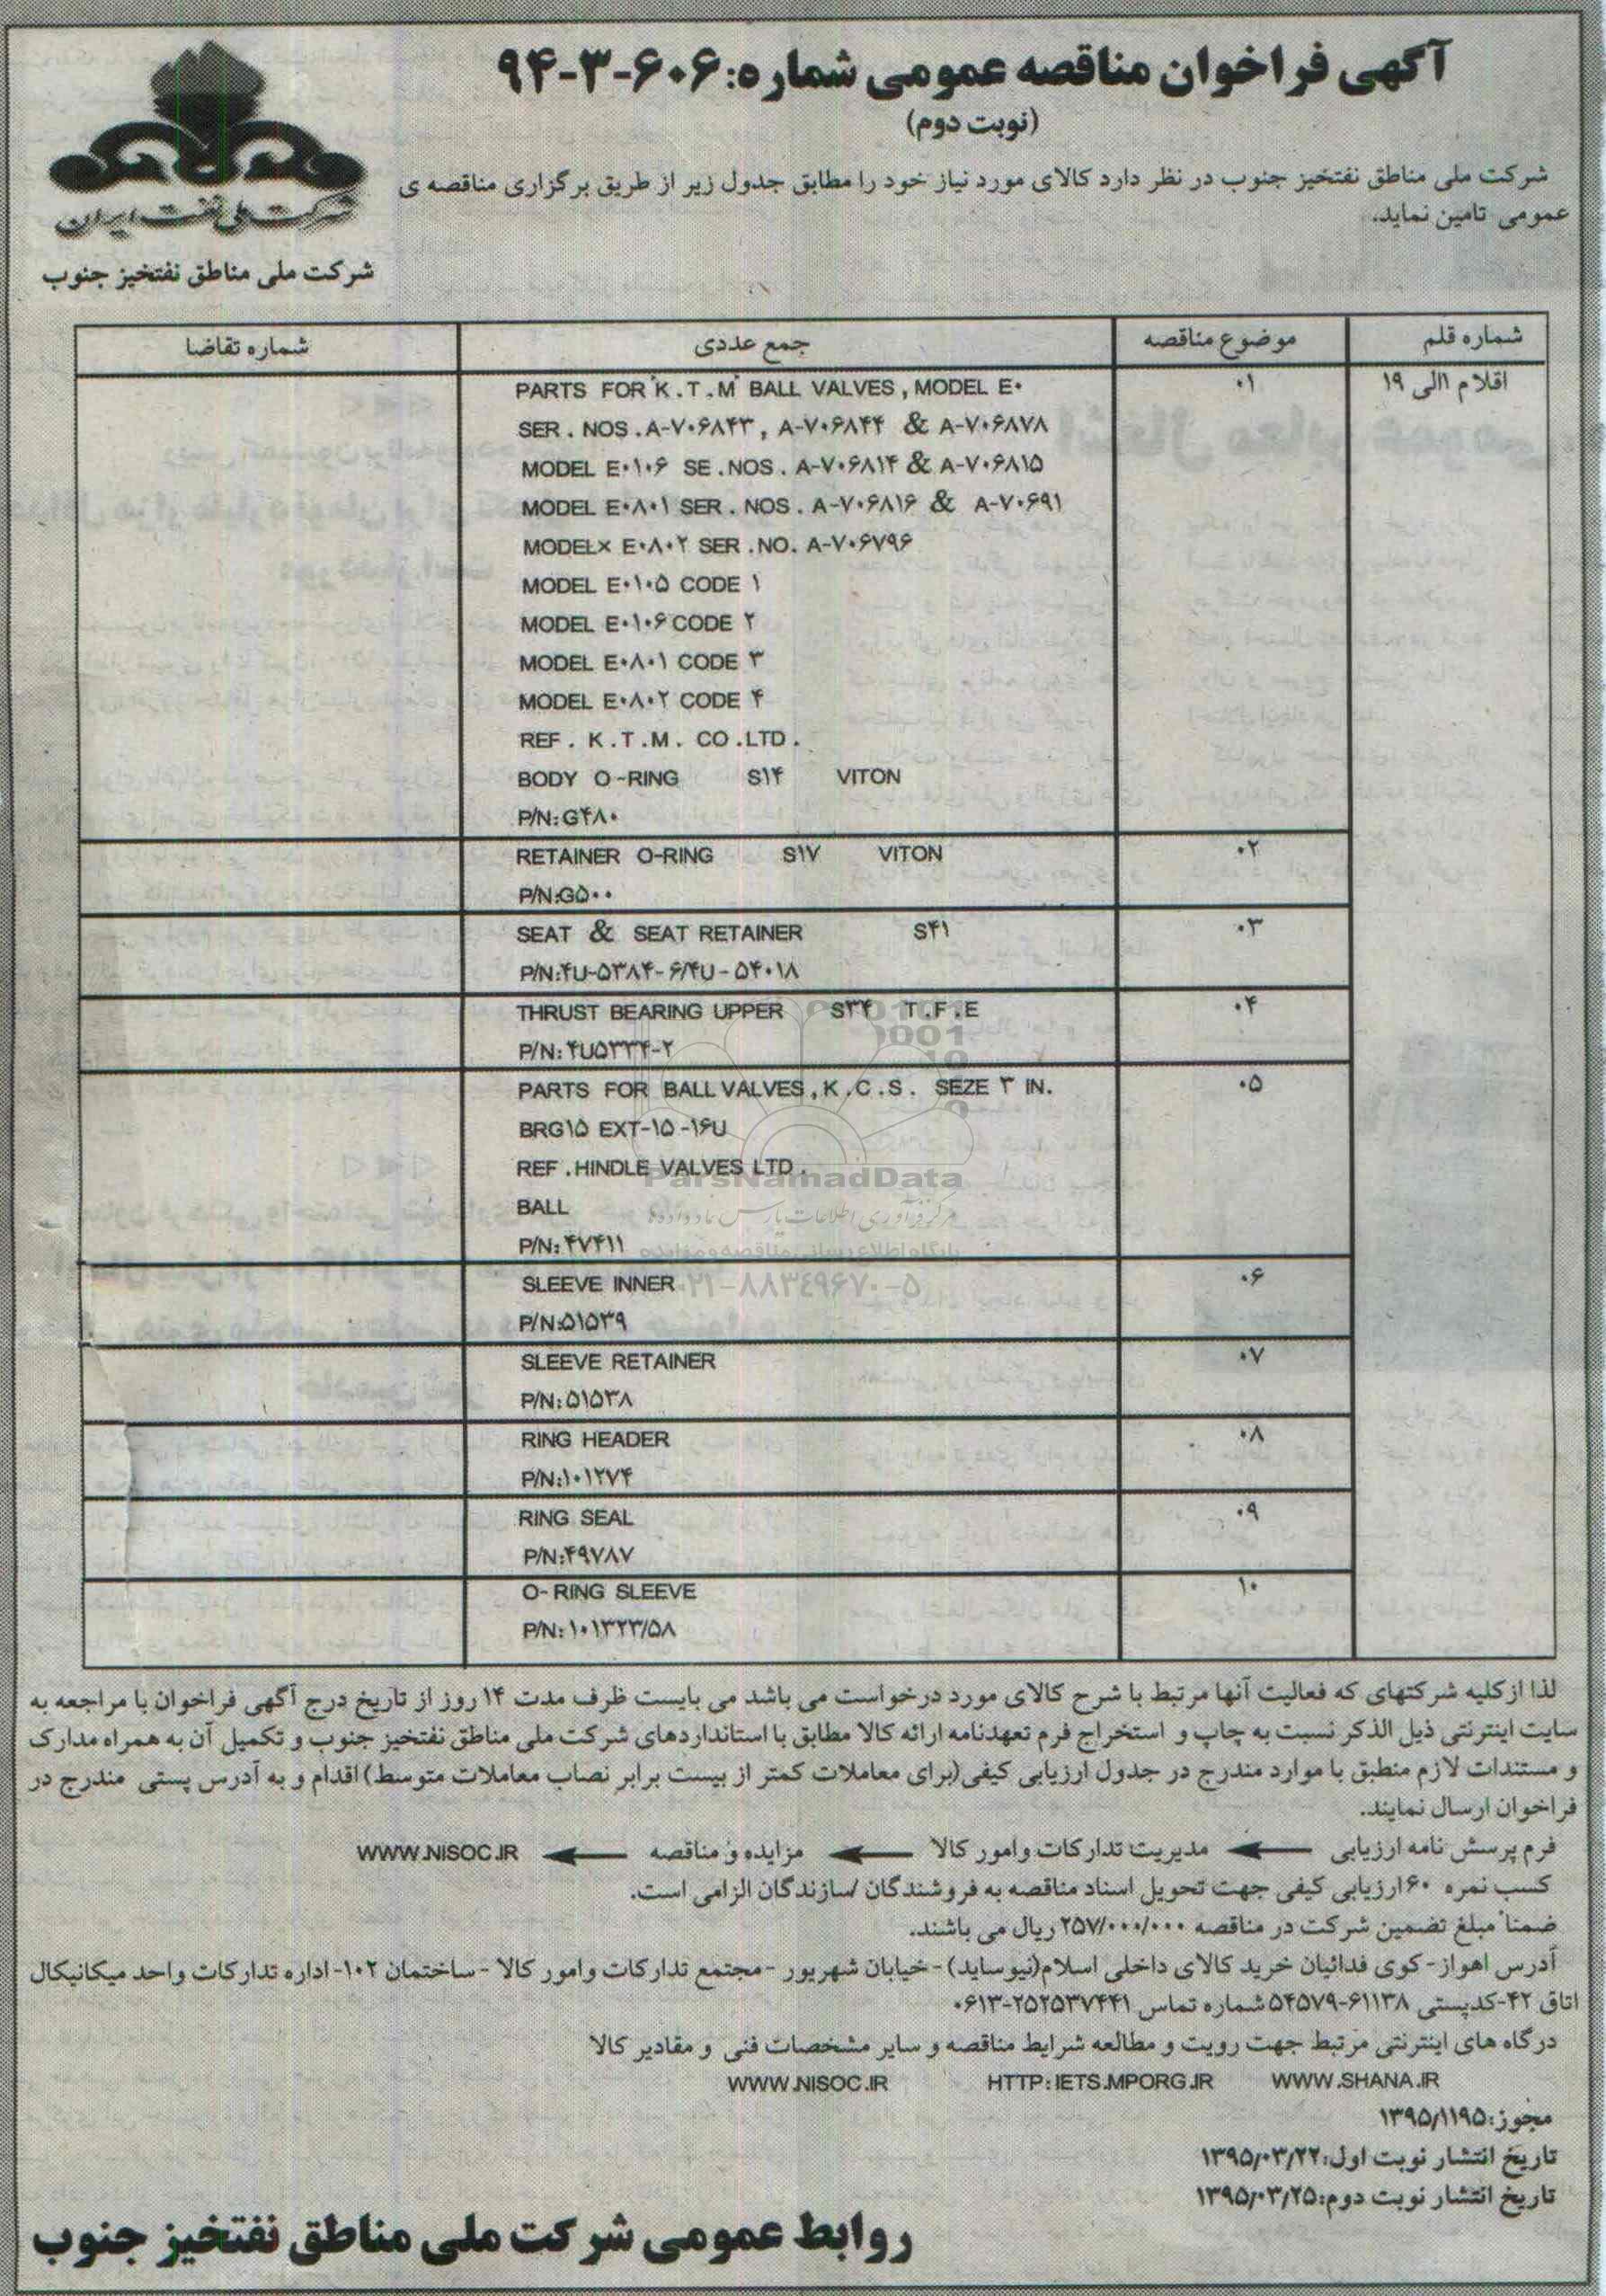 آگهی فراخوان مناقصه عمومی شماره: ۶۰۶-۳-۹۴
(نوبت دوم)
شرکت ملی نفت ایران
شرکت ملی مناطق نفتخیز جنوب
شرکت ملی مناطق نفتخیز جنوب در نظر دارد کالای مورد نیاز خود را مطابق جدول زیر از طریق برگزاری مناقصه ی
عمومی تامین نماید.
شماره قلم موضوع مناقصه جمع عددی شماره تقاضا
اقلام ۱الی ۱۹ ۰۱ PARTS FOR "K.T.M" BALL VALVES, MODEL E۰
SER. NOS. A-۷۰۶۸۴۳, A-۷۰۶۸۴۴ & A-۷۰۶۸۷۸
MODEL E۰۱۰۶ SE.NOS. A-۷۰۶۸۱۴ & A-۷۰۶۸۱۵
MODEL E۰۸۰۱ SER. NOS. A-۷۰۶۸۱۶ & A-۷۰۶۹۱
MODEL× E۰۸۰۲ SER.NO. A-۷۰۶۷۹۶
MODEL E۰۱۰۵ CODE ۱
MODEL E۰۱۰۶ CODE ۲
MODEL E۰۸۰۱ CODE ۳
MODEL E۰۸۰۲ CODE ۴
REF. K.T.M. CO.LTD.
BODY O-RING S۱۴ VITON
P/N:G۴۸۰
۰۲ RETAINER O-RING S۱۷ VITON
P/N:G۵۰۰
۰۳ SEAT & SEAT RETAINER S۴۱
P/N:۴U-۵۳۸۴-۶/۴U-۵۴۰۱۸
۰۴ THRUST BEARING UPPER S۳۴ T.F.E
P/N:۴U۵۳۳۴-۲
۰۵ PARTS FOR BALL VALVES, K.C.S. SEZE ۳ IN.
BRG۱۵ EXT-۱۵-۱۶U
REF.HINDLE VALVES LTD.
BALL
P/N:۴۷۴۱۱
۰۶ SLEEVE INNER
P/N:۵۱۵۳۹
۰۷ SLEEVE RETAINER
P/N:۵۱۵۳۸
۰۸ RING HEADER
P/N:۱۰۱۲۷۴
۰۹ RING SEAL
P/N:۴۹۷۸۷
۱۰ O-RING SLEEVE
P/N:۱۰۱۳۲۳/۵۸
ParsNamadData
مرکز فرآوری اطلاعات پارس نماد داده ها
پایگاه اطلاع رسانی مناقصه و مزایده
۰۲۱-۸۸۳۴۹۶۷۰-۵
لذا ازکلیه شرکتهای که فعالیت آنها مرتبط با شرح کالای مورد درخواست می باشد می بایست ظرف مدت ۱۴ روز از تاریخ درج آگهی فراخوان با مراجعه به
سایت اینترنتی ذیل الذکر نسبت به چاپ و استخراج فرم تعهدنامه ارائه کالا مطابق با استانداردهای شرکت ملی مناطق نفتخیز جنوب و تکمیل آن به همراه مدارک
و مستندات لازم منطبق با موارد مندرج در جدول ارزیابی کیفی(برای معاملات کمتر از بیست برابر نصاب معاملات متوسط) اقدام و به آدرس پستی مندرج در
فراخوان ارسال نمایند.
فرم پرسش نامه ارزیابی ← مدیریت تدارکات وامور کالا ← مزایده و مناقصه ← WWW.NISOC.IR
کسب نمره ۶۰ ارزیابی کیفی جهت تحویل اسناد مناقصه به فروشندگان /سازندگان الزامی است.
ضمنا مبلغ تضمین شرکت در مناقصه ۲۵۷/۰۰۰/۰۰۰ ریال می باشند.
آدرس اهواز- کوی فدائیان خرید کالای داخلی اسلام(نیوساید) - خیابان شهریور - مجتمع تدارکات وامور کالا - ساختمان ۱۰۲- اداره تدارکات واحد میکانیکال
اتاق ۴۲-کدپستی ۶۱۱۳۸-۵۴۵۷۹ شماره تماس ۲۵۲۵۳۷۴۴۱-۰۶۱۳
درگاه های اینترنتی مرتبط جهت رویت و مطالعه شرایط مناقصه و سایر مشخصات فنی و مقادیر کالا
WWW.SHANA.IR HTTP:IETS.MPORG.IR WWW.NISOC.IR
مجوز: ۱۳۹۵/۱۱۹۵
تاریخ انتشار نوبت اول: ۱۳۹۵/۰۳/۲۲
تاریخ انتشار نوبت دوم: ۱۳۹۵/۰۳/۲۵
روابط عمومی شرکت ملی مناطق نفتخیز جنوب